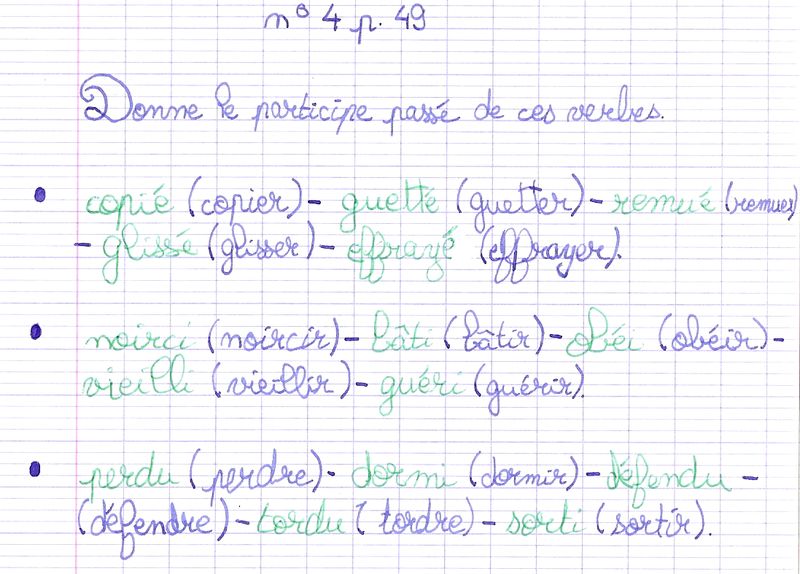 n° 4 p. 49
Donne le participe passé de ces verbes.
• copié (copier) - guetté (guetter) - remué (remuer)
- glissé (glisser) - effrayé (effrayer).
• noirci (noircir) - bâti (bâtir) - obéi (obéir) -
vieilli (vieillir) - guéri (guérir).
• perdu (perdre) - dormi (dormir) - défendu -
(défendre) - tordu (tordre) - sorti (sortir).